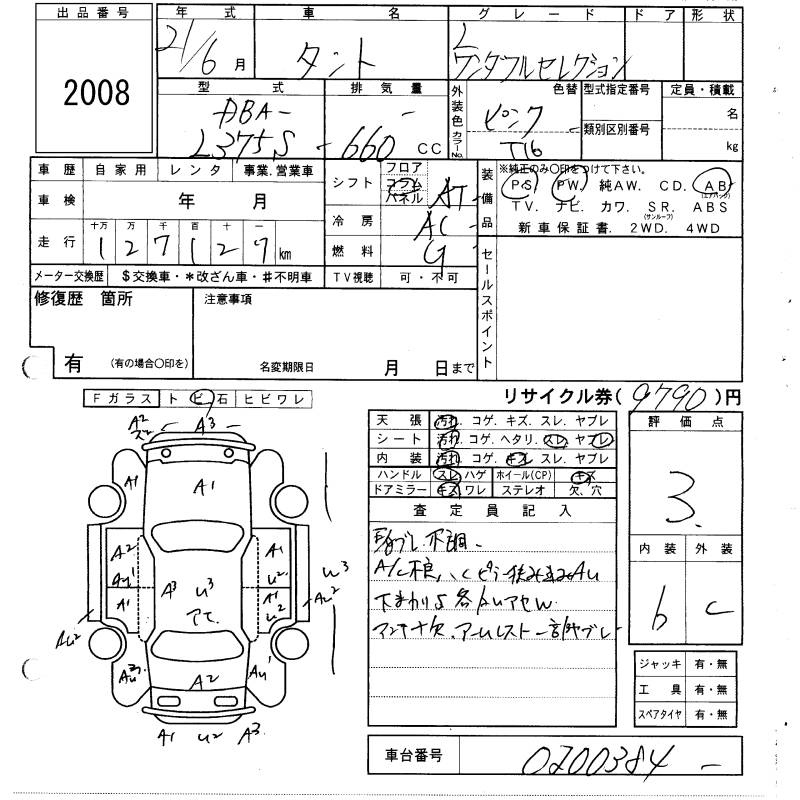 出品番号 2008
年式 21/6月
車名 タント
グレード L ワンダフルセレクション
ドア 形状
型式 DBA- L375S
排気量 - 660 CC
外装色 カラーNo. ピンク T16
色替
型式指定番号
類別区別番号
定員・積載 名 kg
車歴 自家用 レンタ 事業.営業車
車検 年 月
走行 十万 万 千 百 十 一
1 2 7 1 2 7 km
メーター交換歴 $交換車・*改ざん車・#不明車
シフト フロア コラム パネル AT
冷房 AC
燃料 G
TV視聴 可・不可
装備品 ※純正のみ〇印をつけて下さい。
PS PW 純AW. CD. AB (エアバック)
TV. ナビ. カワ. SR. (サンルーフ) ABS
新車保証書. 2WD. 4WD
セールスポイント
修復歴 箇所
有 (有の場合〇印を)
注意事項
名変期限日 月 日まで
リサイクル券(9790)円
Fガラス トビ石 ヒビワレ
A2 A3
A1 A1
A2 A1
A3 U3
A1 A1
U2
U3
A2
A1 U2 A3
天張 汚れ. コゲ. キズ. スレ. ヤブレ
シート 汚れ. コゲ. ヘタリ. スレ. ヤブレ
内装 汚れ. コゲ. キズ. スレ. ヤブレ
ハンドル スレ ハゲ ホイール(CP) キズ
ドアミラー キズ ワレ ステレオ 欠. 穴
査定員記入
A/C不良
アンテナ欠. アームレスト一部ヤブレ
評価点 3.
内装 外装
b c
ジャッキ 有・無
工具 有・無
スペアタイヤ 有・無
車台番号 0200384 -